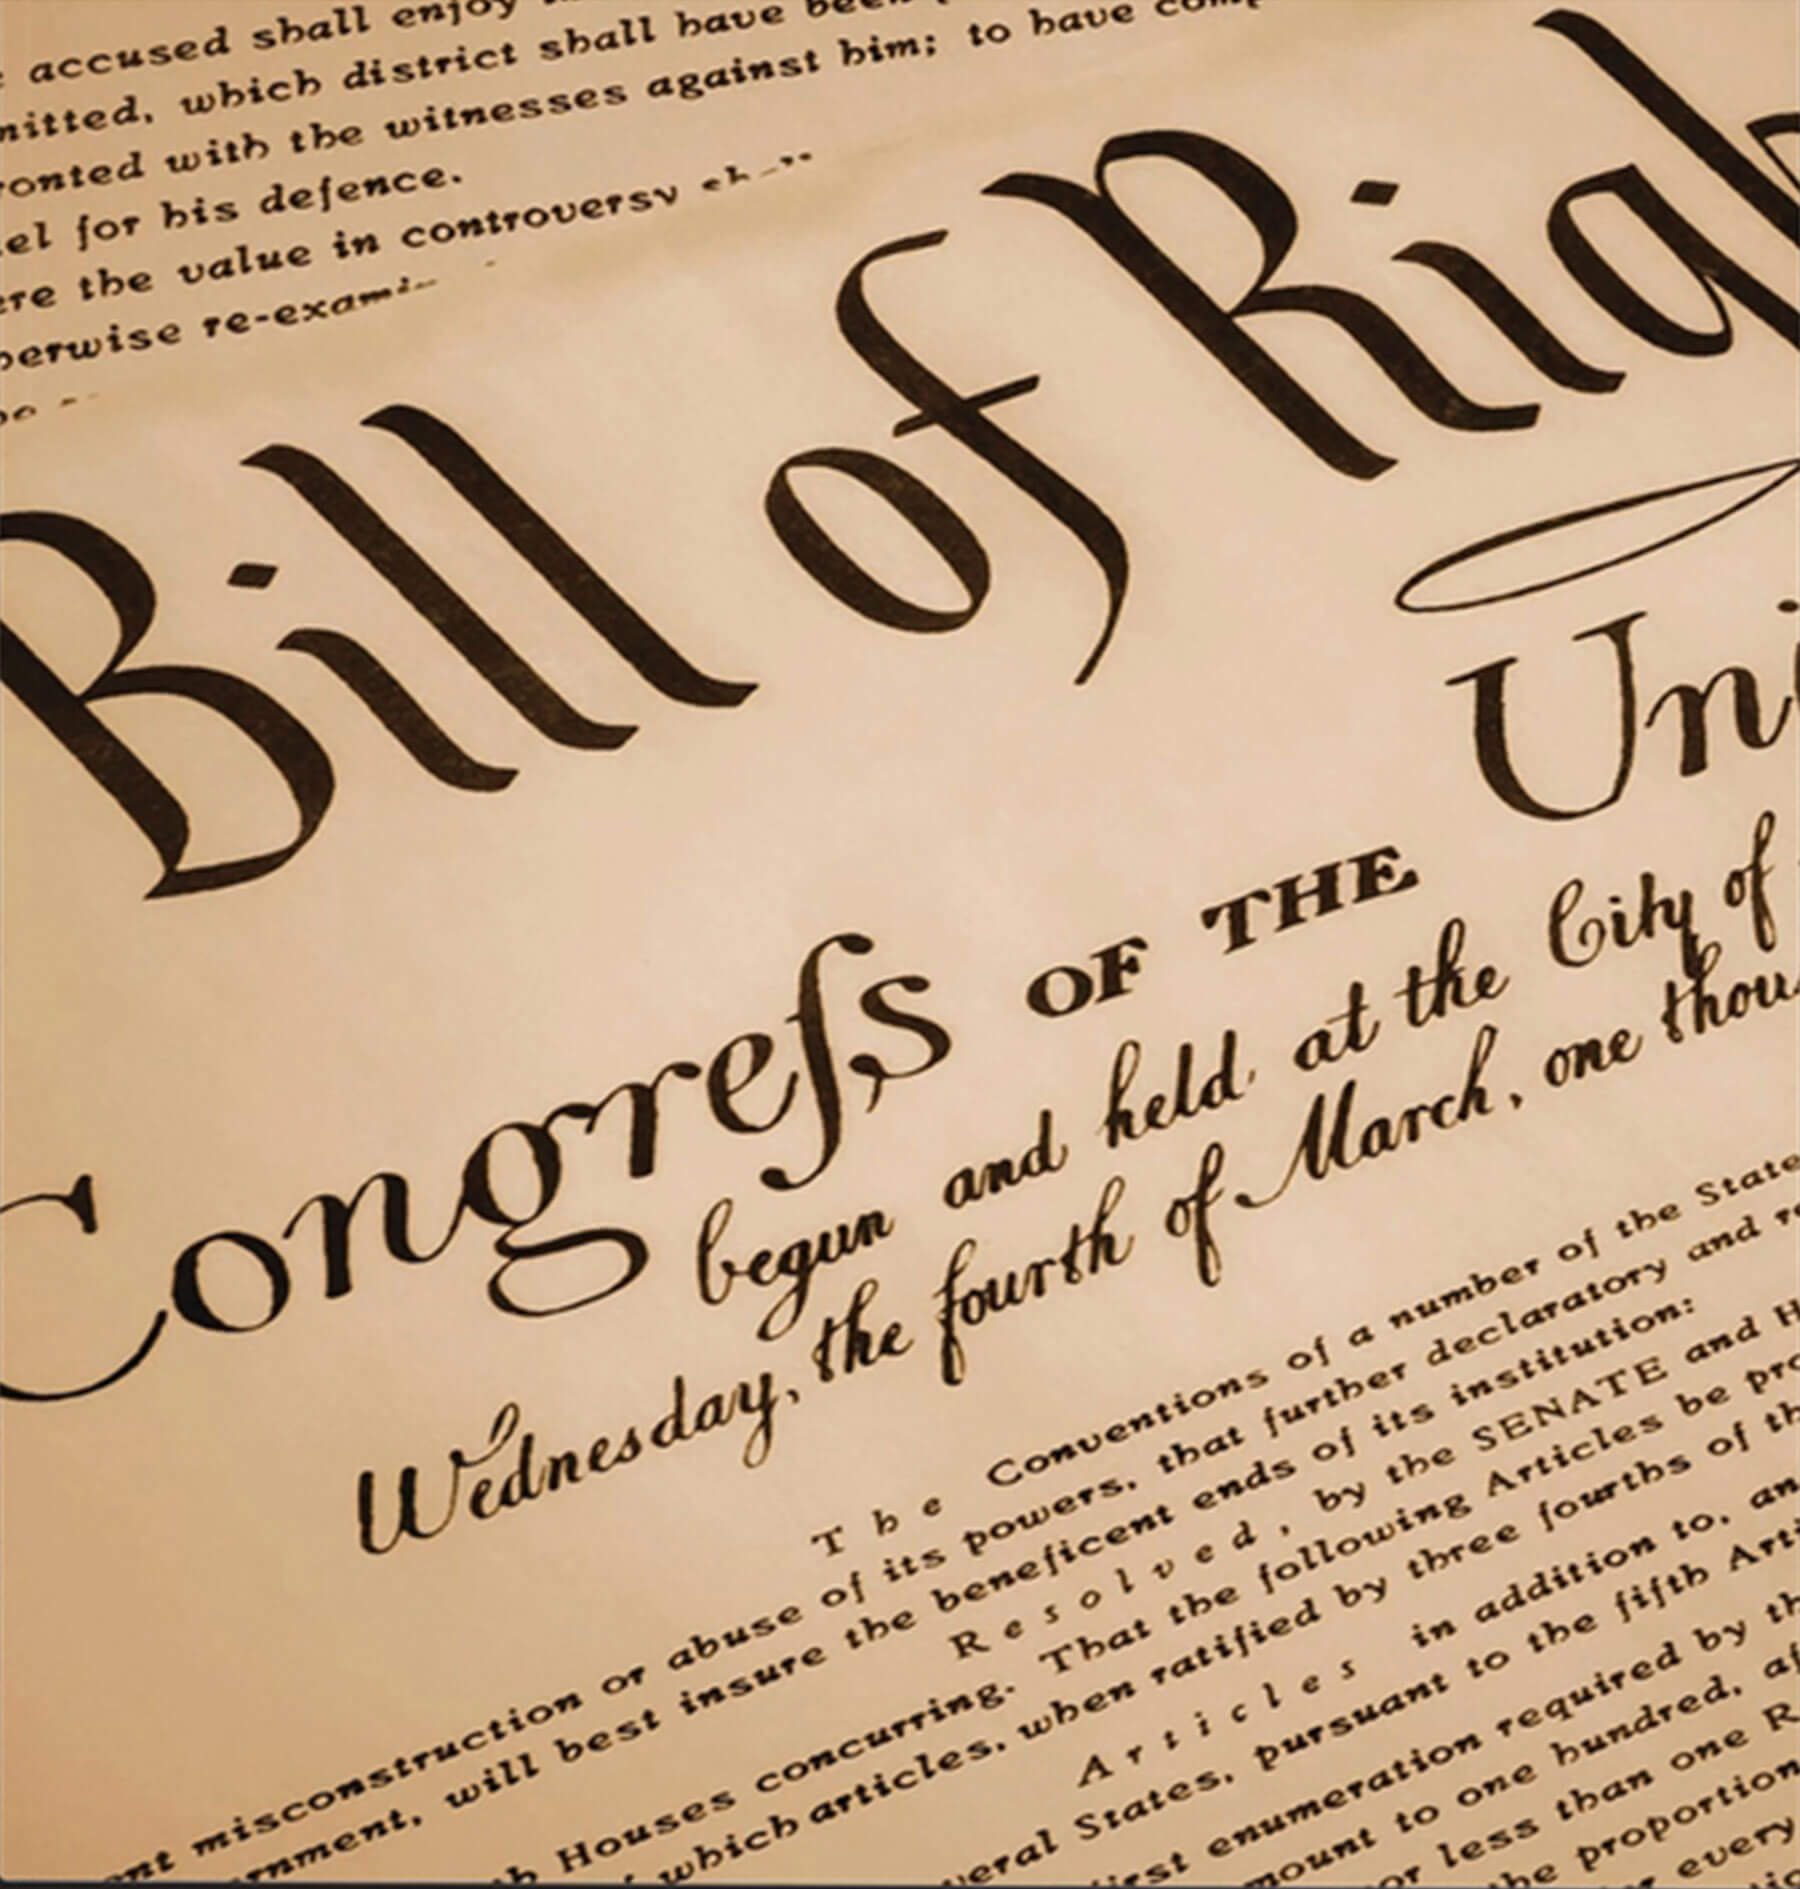 accused shall enjoy
mitted, which district shall have been
ronted with the witnesses against him; to have
el for his defence.
ere the value in controversy
herwise re-exami
Bill of Righ
Congreſs OF THE Uni
begun and held at the City of
Wednesday, the fourth of March, one thou
The Conventions of a number of the State
ent misconstruction or abuse of its powers, that further declaratory and re
rnment, will best insure the beneficent ends of its institution:
Resolved, by the SENATE and H
h Houses concurring. That the following Articles be pro
f which articles, when ratified by three fourths of th
Articles in addition to, an
veral States, pursuant to the fifth Arti
irst enumeration required by th
mount to one hundred, af
or less than one R
he proportion
r every